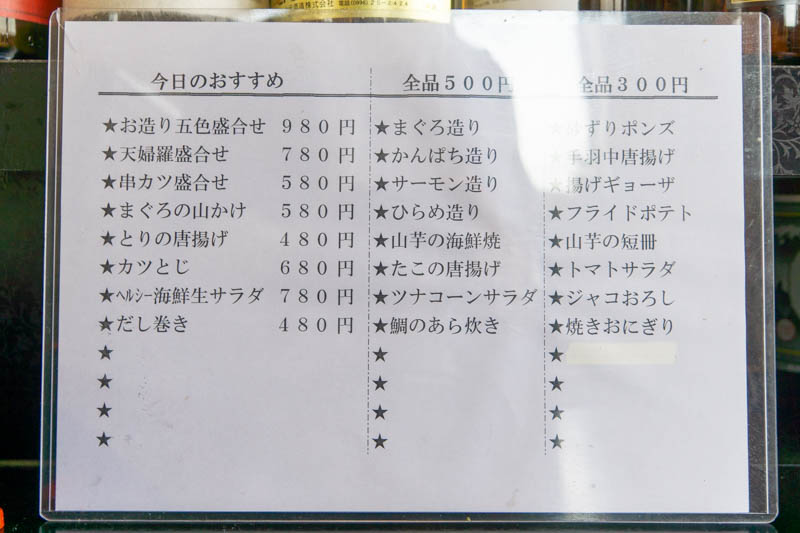 株式会社 電話(0896)25-2424
今日のおすすめ
★お造り五色盛合せ 980円
★天婦羅盛合せ 780円
★串カツ盛合せ 580円
★まぐろの山かけ 580円
★とりの唐揚げ 480円
★カツとじ 680円
★ﾍﾙｼｰ海鮮生サラダ 780円
★だし巻き 480円
★
★
★
★
全品500円
★まぐろ造り
★かんぱち造り
★サーモン造り
★ひらめ造り
★山芋の海鮮焼
★たこの唐揚げ
★ツナコーンサラダ
★鯛のあら炊き
★
★
★
★
全品300円
★ずりポンズ
★手羽中唐揚げ
★揚げギョーザ
★フライドポテト
★山芋の短冊
★トマトサラダ
★ジャコおろし
★焼きおにぎり
★
★
★
★